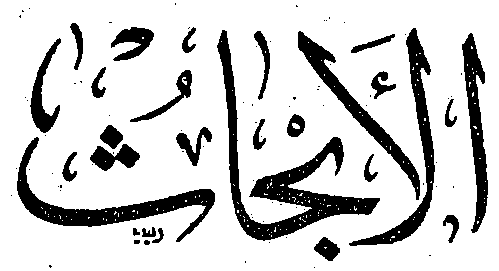 الأبحاث